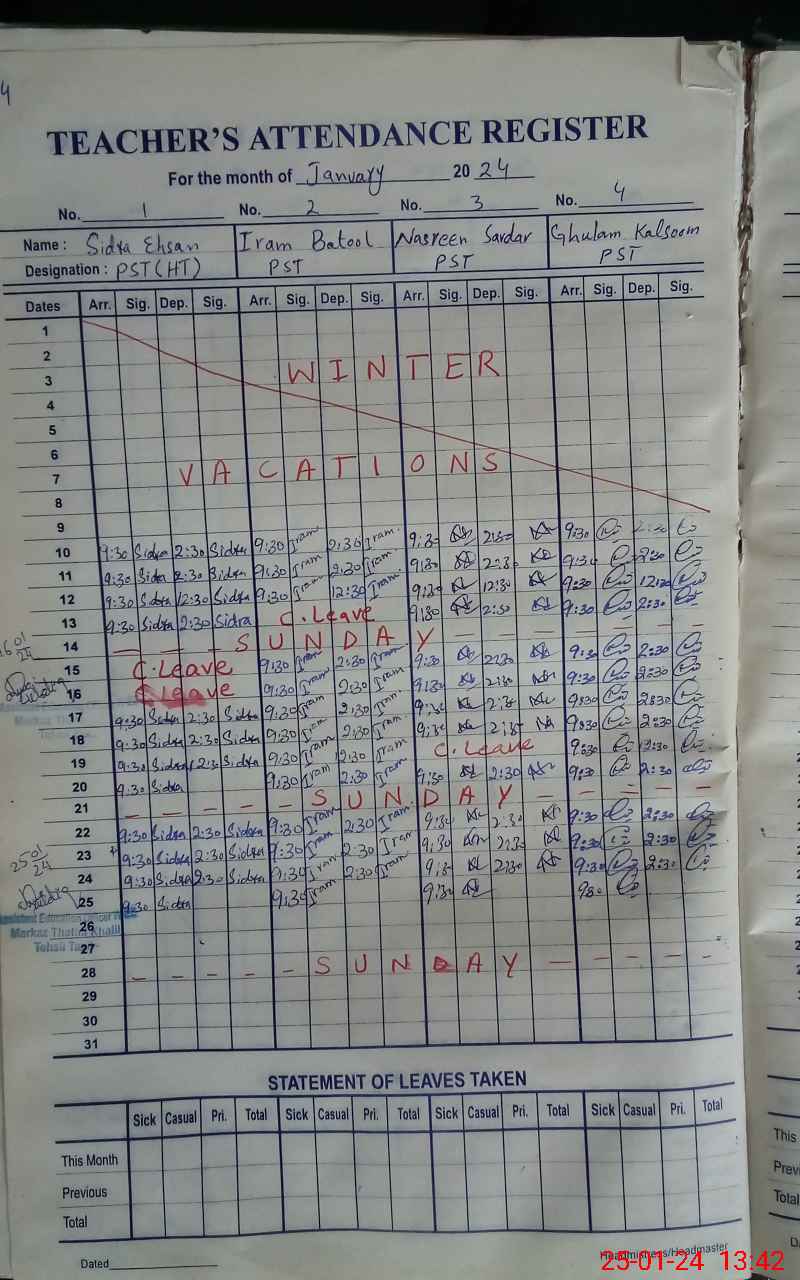 4
TEACHER'S ATTENDANCE REGISTER
For the month of January 2024
No. 1 No. 2 No. 3 No. 4
Name : Sidra Ehsan Iram Batool Nasreen Sardar Ghulam Kalsoom
Designation : PST(HT) PST PST PST
Dates Arr. Sig. Dep. Sig. Arr. Sig. Dep. Sig. Arr. Sig. Dep. Sig. Arr. Sig. Dep. Sig.
1
2
3 WINTER
4
5
6
7 VACATIONS
8
9
10 9:30 Sidra 2:30 Sidra 9:30 Iram 2:30 Iram 9:30 2:30 9:30 2:30
11 9:30 Sidra 2:30 Sidra 9:30 Iram 2:30 Iram 9:30 2:30 9:30 2:30
12 9:30 Sidra 12:30 Sidra 9:30 Iram 12:30 Iram 9:30 12:30 9:30 12:30
13 9:30 Sidra 2:30 Sidra C.Leave 9:30 2:30 9:30 2:30
14 — — — S U N D A Y — — — — — —
15 C.Leave 9:30 Iram 2:30 Iram 9:30 2:30 9:30 2:30
16 C.Leave 9:30 Iram 2:30 Iram 9:30 2:30 9:30 2:30
17 9:30 Sidra 2:30 Sidra 9:30 Iram 2:30 Iram 9:30 2:30 9:30 2:30
18 9:30 Sidra 2:30 Sidra 9:30 Iram 2:30 Iram 9:30 2:30 9:30 2:30
19 9:30 Sidra 12:30 Sidra 9:30 Iram 12:30 Iram C.Leave 9:30 12:30
20 9:30 Sidra 9:30 Iram 2:30 Iram 9:30 2:30 9:30 2:30
21 — — — — — S U N D A Y — — — — —
22 9:30 Sidra 2:30 Sidra 9:30 Iram 2:30 Iram 9:30 2:30 9:30 2:30
23 9:30 Sidra 2:30 Sidra 9:30 Iram 2:30 Iram 9:30 2:30 9:30 2:30
24 9:30 Sidra 2:30 Sidra 9:30 Iram 2:30 Iram 9:30 2:30 9:30 2:30
25 9:30 Sidra 9:30 Iram 9:30
25 01
24
Assistant Education Officer
26
Markaz Thatha Khalil
27
Tehsil
28 — — — — — S U N D A Y — — — — —
29
30
31
STATEMENT OF LEAVES TAKEN
Sick Casual Pri. Total Sick Casual Pri. Total Sick Casual Pri. Total Sick Casual Pri. Total
This Month
Previous
Total
Dated
Headmistress/Headmaster
This
Previ
Total
25-01-24 13:42